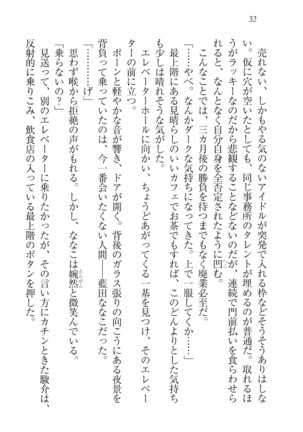 32
売れない、しかもやる気のないアイドルが突発で入れる枠などそうそうありはしな
い。仮に穴が空いたとしても、同じ事務所のタレントが埋めるのが普通だ。取れるほ
うがラッキーなのだから悲観することなどないのだが、連続で門前払いを食らわせら
れると、なんとなく自分自身を全否定されたように凹む。
こんなことでは、三カ月後の勝負を待つまでもなく廃業必至だ。
「……やべ。なんかダークな気持ちになってきた。上で一服してくか……」
最上階にある見晴らしのいいカフェでお茶でもすれば、このどんよりとした気持ち
も少しは晴れそうな気がした。
エレベーターホールに向かい、ちょうどあがってくる一基を見つけ、そのエレベー
ターの前に立つ。
ポーンと軽やかな音が響き、ドアが開く。背後のガラス張りの向こうにある夜景を
背負って乗っていたのは、今一番会いたくない人間――藍田ななこだった。
「………………げ」
思わず喉から拒絶の声がもれる。しかし、ななこは婉然と微笑んでいる。
「乗らないの？」
見送って、別のエレベーターに乗りたかったが、その言い方にカチンときた駿介は、
反射的に乗りこみ、飲食店の入っている最上階のボタンを押した。